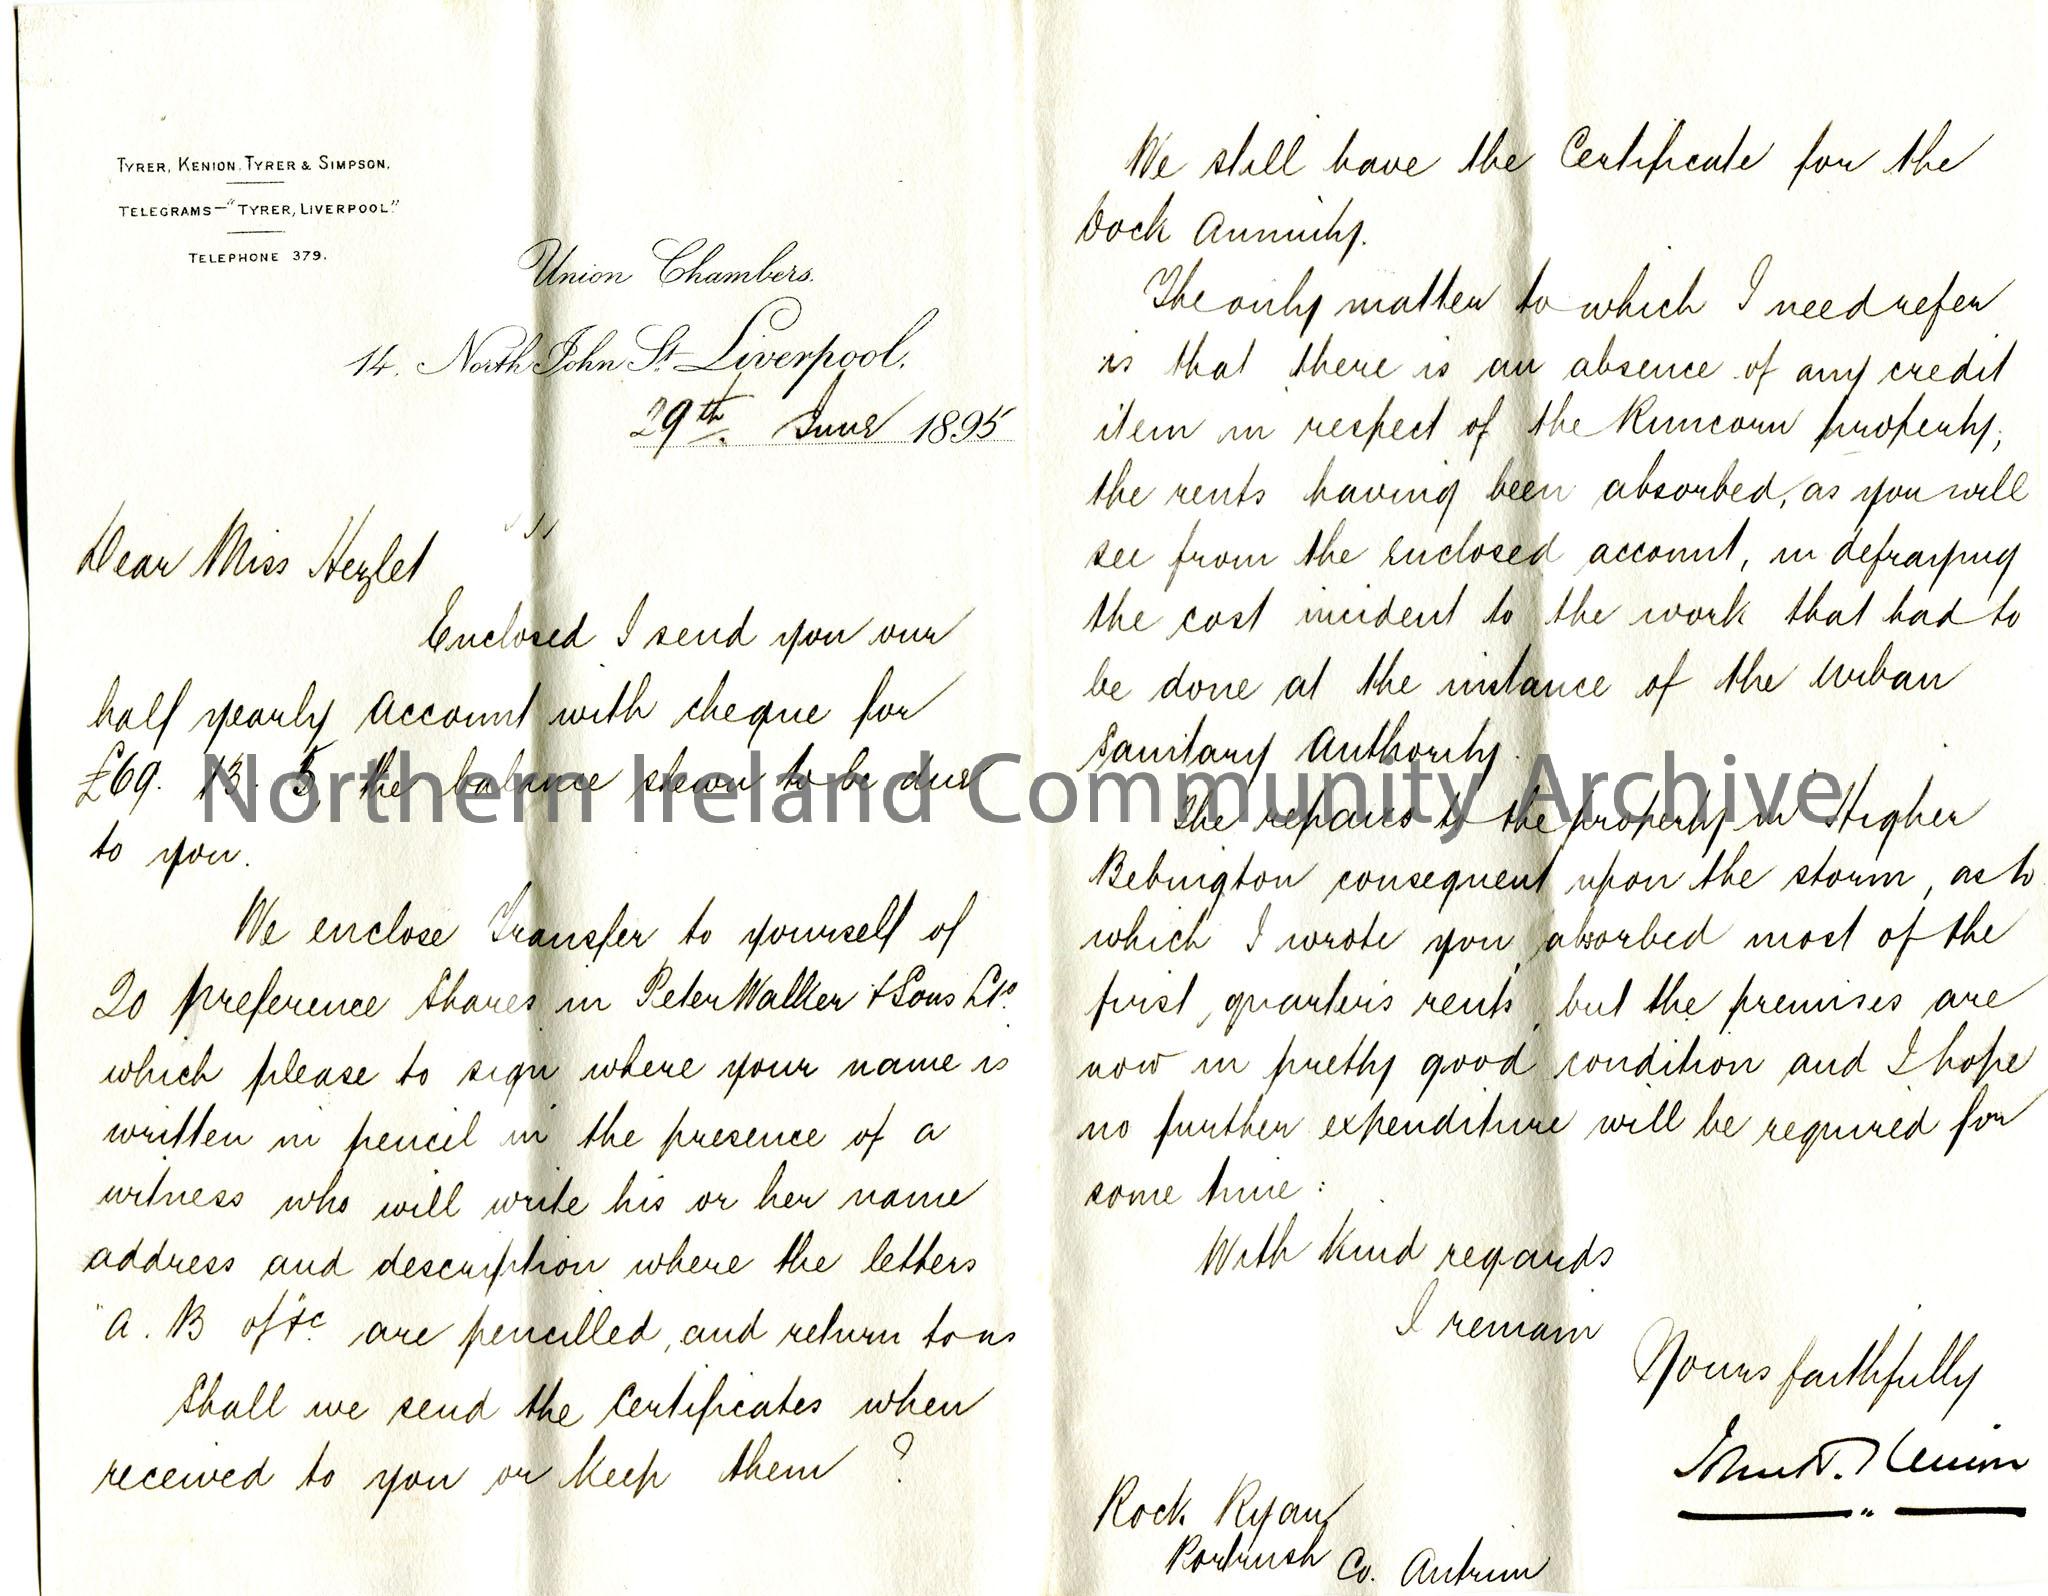 TYRER, KENION, TYRER & SIMPSON.
TELEGRAMS—"TYRER, LIVERPOOL."
TELEPHONE 379.
Union Chambers.
14. North John St. Liverpool.
29th June 1895
Dear Miss Hezlet
Enclosed I send you our
half yearly account with cheque for
£69. 13. 5, the balance shewn to be due
to you.
We enclose Transfer to yourself of
20 preference Shares in Peter Walker & Sons Ltd.
which please to sign where your name is
written in pencil in the presence of a
witness who will write his or her name
address and description where the letters
"A. B of &c" are pencilled, and return to us
Shall we send the Certificates when
received to you or keep them?
We still have the Certificate for the
Dock Annuity.
The only matter to which I need refer
is that there is an absence of any credit
item in respect of the Runcorn property;
the rents having been absorbed, as you will
see from the enclosed account, in defraying
the cost incident to the work that had to
be done at the instance of the Urban
Sanitary Authority.
The repairs to the property in Higher
Bebington consequent upon the storm, as to
which I wrote you, absorbed most of the
first quarter's rents, but the premises are
now in pretty good condition and I hope
no further expenditure will be required for
some time:
With kind regards
I remain
Yours faithfully
Kenion
Rock Ryan
Portrush Co. Antrim
Northern Ireland Community Archive